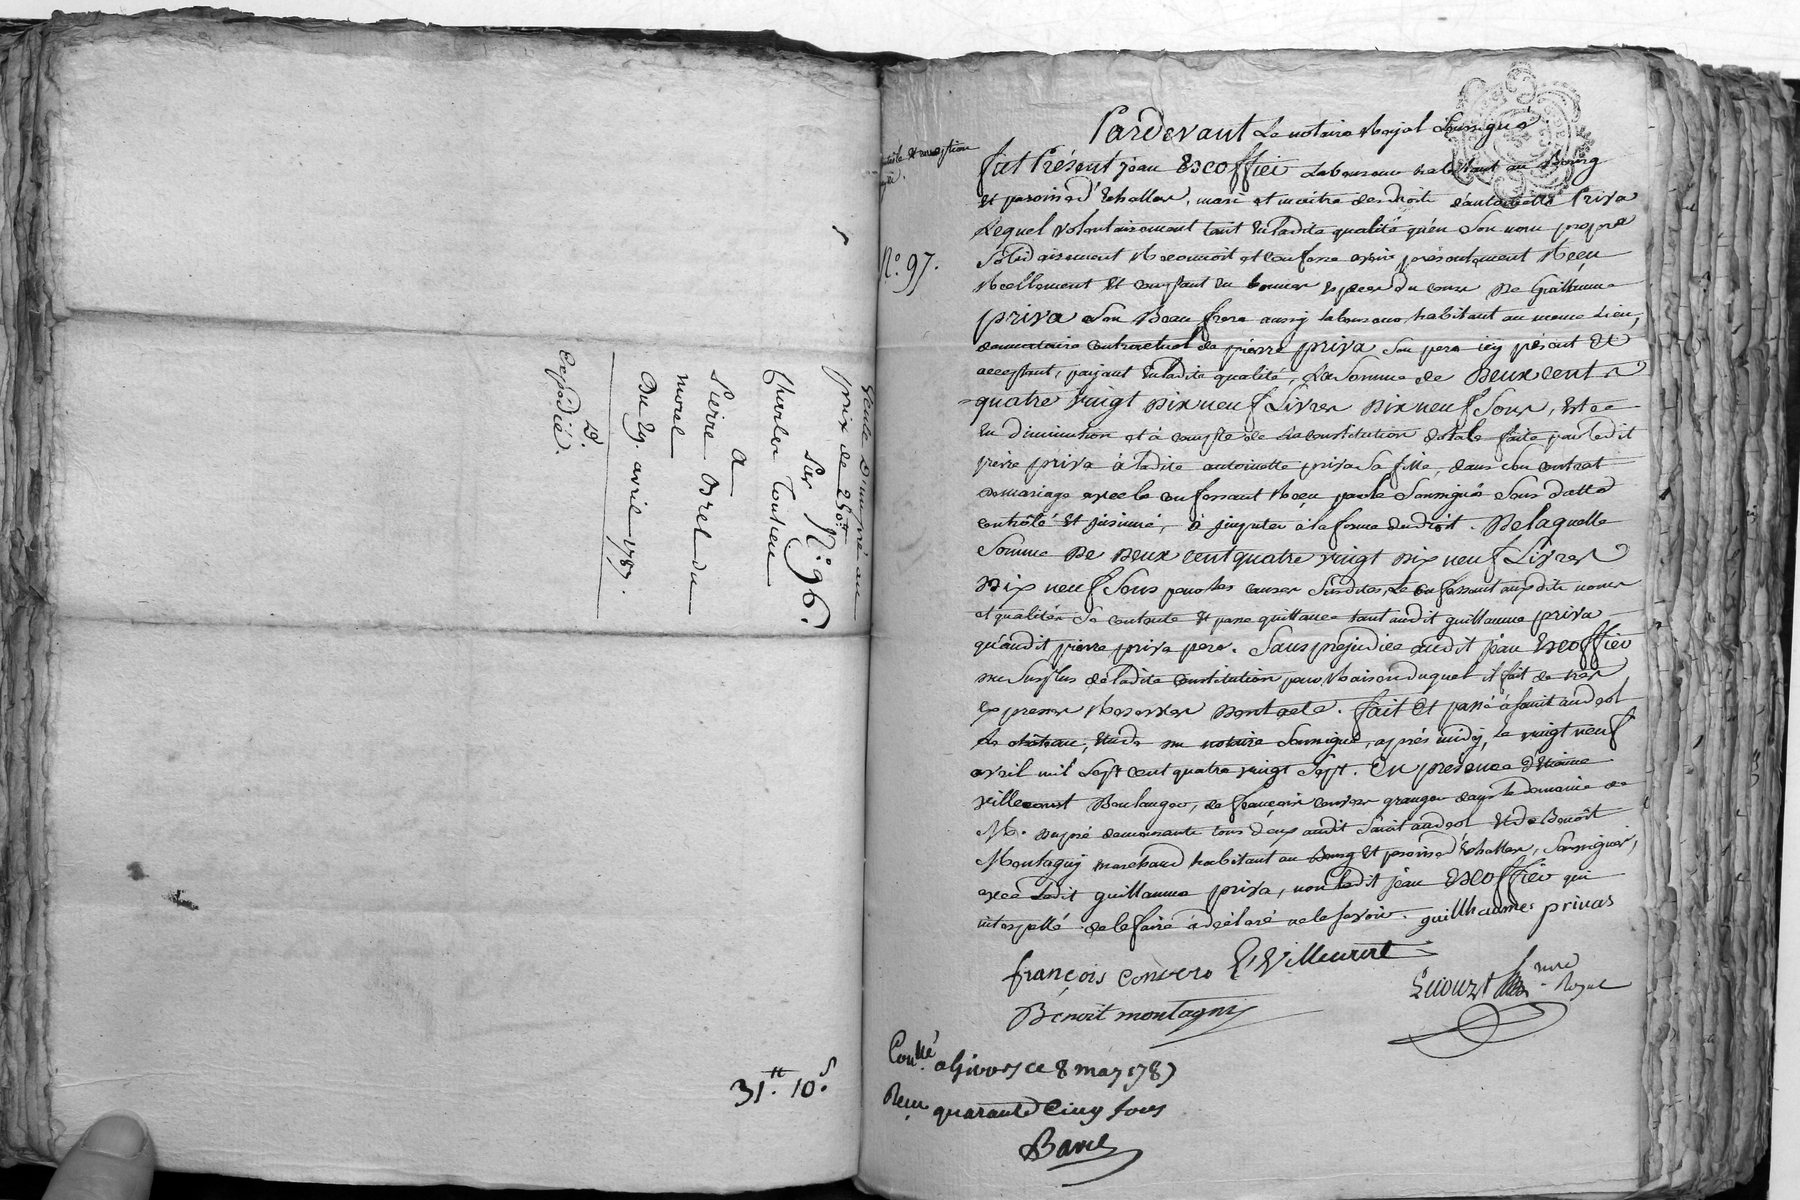 Vente D'un pré au
prix de 250tt
sur N.o 96.
Charles Tontieu
a
Pierre Brel du
morel
Du 29. avril 1787.
Do.
Expédié.
31.tt 10.s
N.o 97.
Pardevant Le notaire Royal Soussigné
fut Présent jean Escoffier Laboureur habitant au Bourg
et paroisse d'Echallas, mari et maitre des droits d'antoinette Priva
Lequel volontairement tant en ladite qualité qu'en Son nom propre
Solidairement Reconnoit et confesse avoir présentement Reçu
Réellement et comptant en bonnes especes du cours De Guillaume
priva Son Beau frere aussy laboureur habitant au meme Lieu,
donnataire contractuel de pierre priva Son pere icy présent et
acceptant, paÿant en ladite qualité, La Somme de Deux cent
quatre vingt Dix neuf Livres Dix neuf Sous, Et ce
en diminution et à compte de La constitution dotale faite par ledit
pierre priva à ladite antoinette priva Sa fille, dans Son contrat
de mariage avec le confessant Reçu par le Soussigné Sous Sa datte
contrôlé et jnsinué, à jmputer à la forme du droit. De laquelle
Somme De Deux cent quatre vingt Dix neuf Livres
Dix neuf Sous pour les causes Susdites, Le confessant aux dits noms
et qualités Se contente et passe quittance tant audit guillaume priva
qu'audit pierre priva pere. Sans préjudice audit jean Escoffier
du Surplus de ladite constitution pour Raison duquel il fait de tres
expresses Reserves Dont acte. fait et passé à Saint andeol
Le château, Etude du notaire Soussigné, après midy, Le vingt neuf
avril mil Sept cent quatre vingt Sept. En présence d'Etienne
villecourt Boulanger, de françois convers granger dans le domaine de
M. dupré demeurants tous deux audit Saint andeol Et de Benoît
Montagny marchand habitant au Bourg et paroisse d'Echallas, Soussignés,
avec Ledit guillaume priva, non ledit jean Escoffier qui
interpellé de le faire a déclaré ne le Savoir. guillhaumes privas
françois convers E Villecourt
Benoit montagny
nore Royal
Con.llé a Givors ce 8 may 1787
Reçu quarante Cinq sous